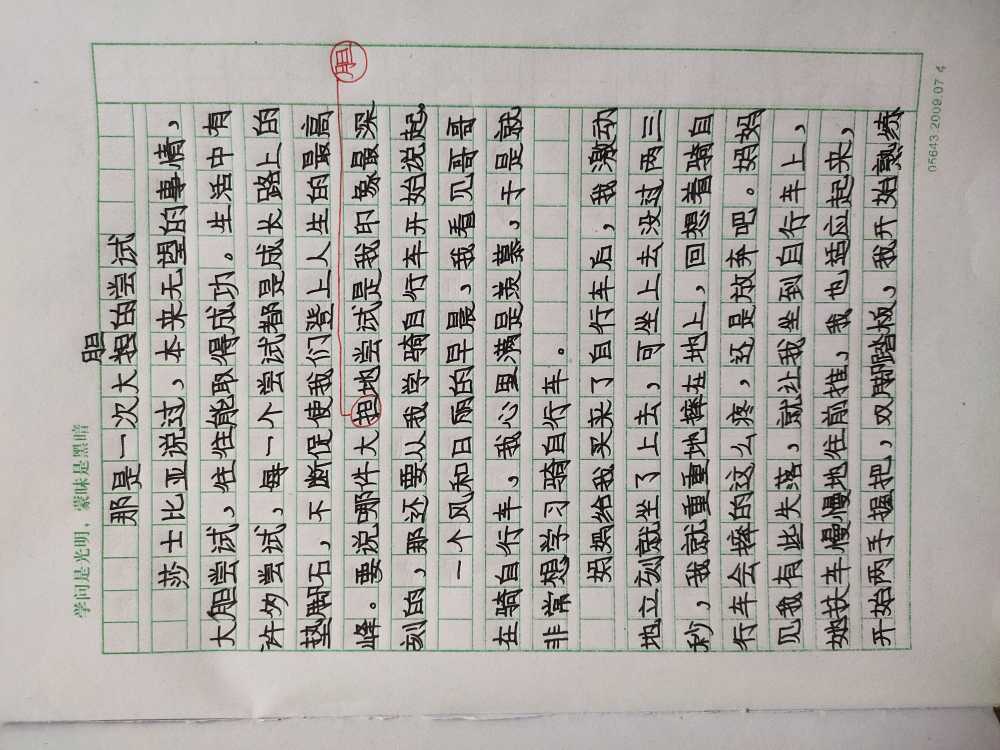 学问是光明，蒙昧是黑暗
胆
那是一次大担的尝试
莎士比亚说过，本来无望的事情，
大胆尝试，往往能取得成功。生活中有
许多尝试，每一个尝试都是成长路上的
垫脚石，不断促使我们登上人生的最高
胆
峰。要说哪件大担地尝试是我印象最深
刻的，那还要从我学骑自行车开始说起。
一个风和日丽的早晨，我看见哥哥
在骑自行车，我心里满是羡慕，于是就
非常想学习骑自行车。
妈妈给我买来了自行车后，我激动
地立刻就坐了上去，可坐上去没过两三
秒，我就重重地摔在地上，回想着骑自
行车会摔的这么疼，还是放弃吧。妈妈
见我有些失落，就让我坐到自行车上，
她扶车慢慢地往前推，我也适应起来，
开始两手握把，双脚踏板，我开始熟练
05643.2009.07 4